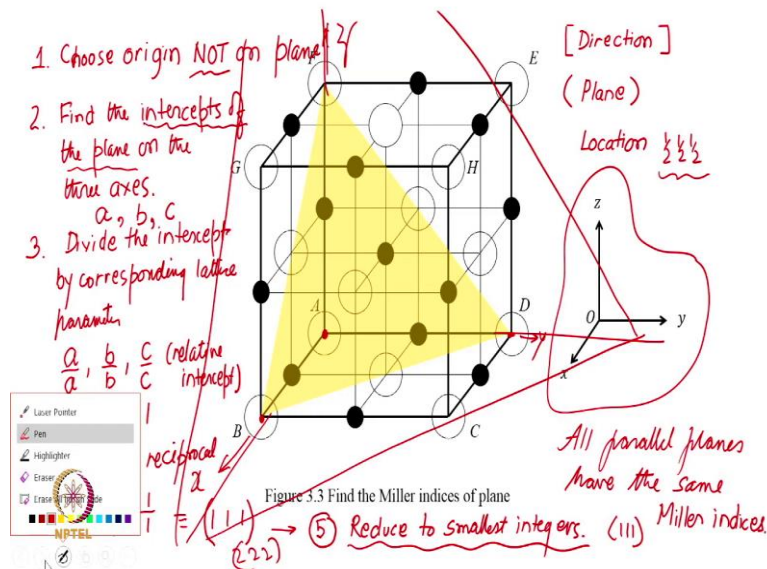 1. Choose origin NOT on plane
2. Find the intercepts of
the plane on the
three axes.
a, b, c
3. Divide the intercept
by corresponding lattice
parameter
a/a, b/b, c/c (relative
intercept)
1
reciprocal
1/1 = (111)
(222) → ⑤ Reduce to smallest integers. (111)
z
y
x
E
G
H
A
D
B
C
Figure 3.3 Find the Miller indices of plane
[Direction]
(Plane)
Location ½ ½ ½
z
O
y
x
All parallel planes
have the same
Miller indices.
Laser Pointer
Pen
Highlighter
Eraser
NPTEL